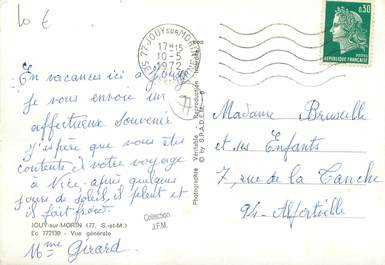 10 €
77 JOUY sur MORIN
17H15
10-5
1972
SEINE ET MARNE
0,30
POSTES
REPUBLIQUE FRANÇAISE
77
En vacances ici à Jouy
je vous envoie un
affectueux souvenir
j'espère que vous êtes
contente de votre voyage
à Nice, après quelques
jours de soleil, il pleut et
il fait froid.
Mme Girard
JOUY-sur-MORIN (77. S.-et-M.)
Ec 772130 - Vue générale
Collection
J.F.M.
Photographie Véritable - Reproduction
© by S.P.A.D.E.M.
Madame Bruseille
et ses Enfants
7, rue de la Tanche
94 - Alfortville